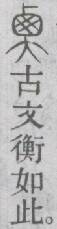 古文衡如此。